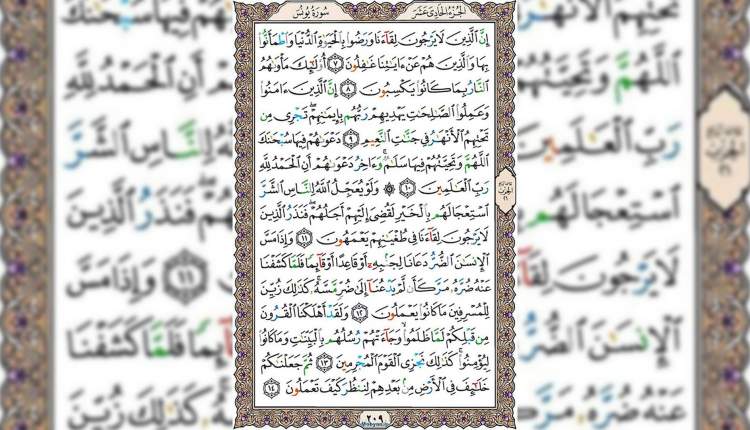 الجزء الحادي عشر
سورة يونس
إِنَّ ٱلَّذِينَ لَا يَرْجُونَ لِقَآءَنَا وَرَضُوا۟ بِٱلْحَيَوٰةِ ٱلدُّنْيَا وَٱطْمَأَنُّوا۟
بِهَا وَٱلَّذِينَ هُمْ عَنْ ءَايَـٰتِنَا غَـٰفِلُونَ ٧ أُو۟لَـٰٓئِكَ مَأْوَىٰهُمُ
ٱلنَّارُ بِمَا كَانُوا۟ يَكْسِبُونَ ٨ إِنَّ ٱلَّذِينَ ءَامَنُوا۟
وَعَمِلُوا۟ ٱلصَّـٰلِحَـٰتِ يَهْدِيهِمْ رَبُّهُم بِإِيمَـٰنِهِمْ ۖ تَجْرِى مِن
تَحْتِهِمُ ٱلْأَنْهَـٰرُ فِى جَنَّـٰتِ ٱلنَّعِيمِ ٩ دَعْوَىٰهُمْ فِيهَا سُبْحَـٰنَكَ
ٱللَّهُمَّ وَتَحِيَّتُهُمْ فِيهَا سَلَـٰمٌ ۚ وَءَاخِرُ دَعْوَىٰهُمْ أَنِ ٱلْحَمْدُ لِلَّهِ
رَبِّ ٱلْعَـٰلَمِينَ ١٠ ۞ وَلَوْ يُعَجِّلُ ٱللَّهُ لِلنَّاسِ ٱلشَّرَّ
ٱسْتِعْجَالَهُم بِٱلْخَيْرِ لَقُضِىَ إِلَيْهِمْ أَجَلُهُمْ ۖ فَنَذَرُ ٱلَّذِينَ
لَا يَرْجُونَ لِقَآءَنَا فِى طُغْيَـٰنِهِمْ يَعْمَهُونَ ١١ وَإِذَا مَسَّ
ٱلْإِنسَـٰنَ ٱلضُّرُّ دَعَانَا لِجَنۢبِهِۦٓ أَوْ قَاعِدًا أَوْ قَآئِمًا فَلَمَّا كَشَفْنَا
عَنْهُ ضُرَّهُۥ مَرَّ كَأَن لَّمْ يَدْعُنَآ إِلَىٰ ضُرٍّ مَّسَّهُۥ ۚ كَذَٰلِكَ زُيِّنَ
لِلْمُسْرِفِينَ مَا كَانُوا۟ يَعْمَلُونَ ١٢ وَلَقَدْ أَهْلَكْنَا ٱلْقُرُونَ
مِن قَبْلِكُمْ لَمَّا ظَلَمُوا۟ ۙ وَجَآءَتْهُمْ رُسُلُهُم بِٱلْبَيِّنَـٰتِ وَمَا كَانُوا۟
لِيُؤْمِنُوا۟ ۚ كَذَٰلِكَ نَجْزِى ٱلْقَوْمَ ٱلْمُجْرِمِينَ ١٣ ثُمَّ جَعَلْنَـٰكُمْ
خَلَـٰٓئِفَ فِى ٱلْأَرْضِ مِنۢ بَعْدِهِمْ لِنَنظُرَ كَيْفَ تَعْمَلُونَ ١٤
٢٠٩